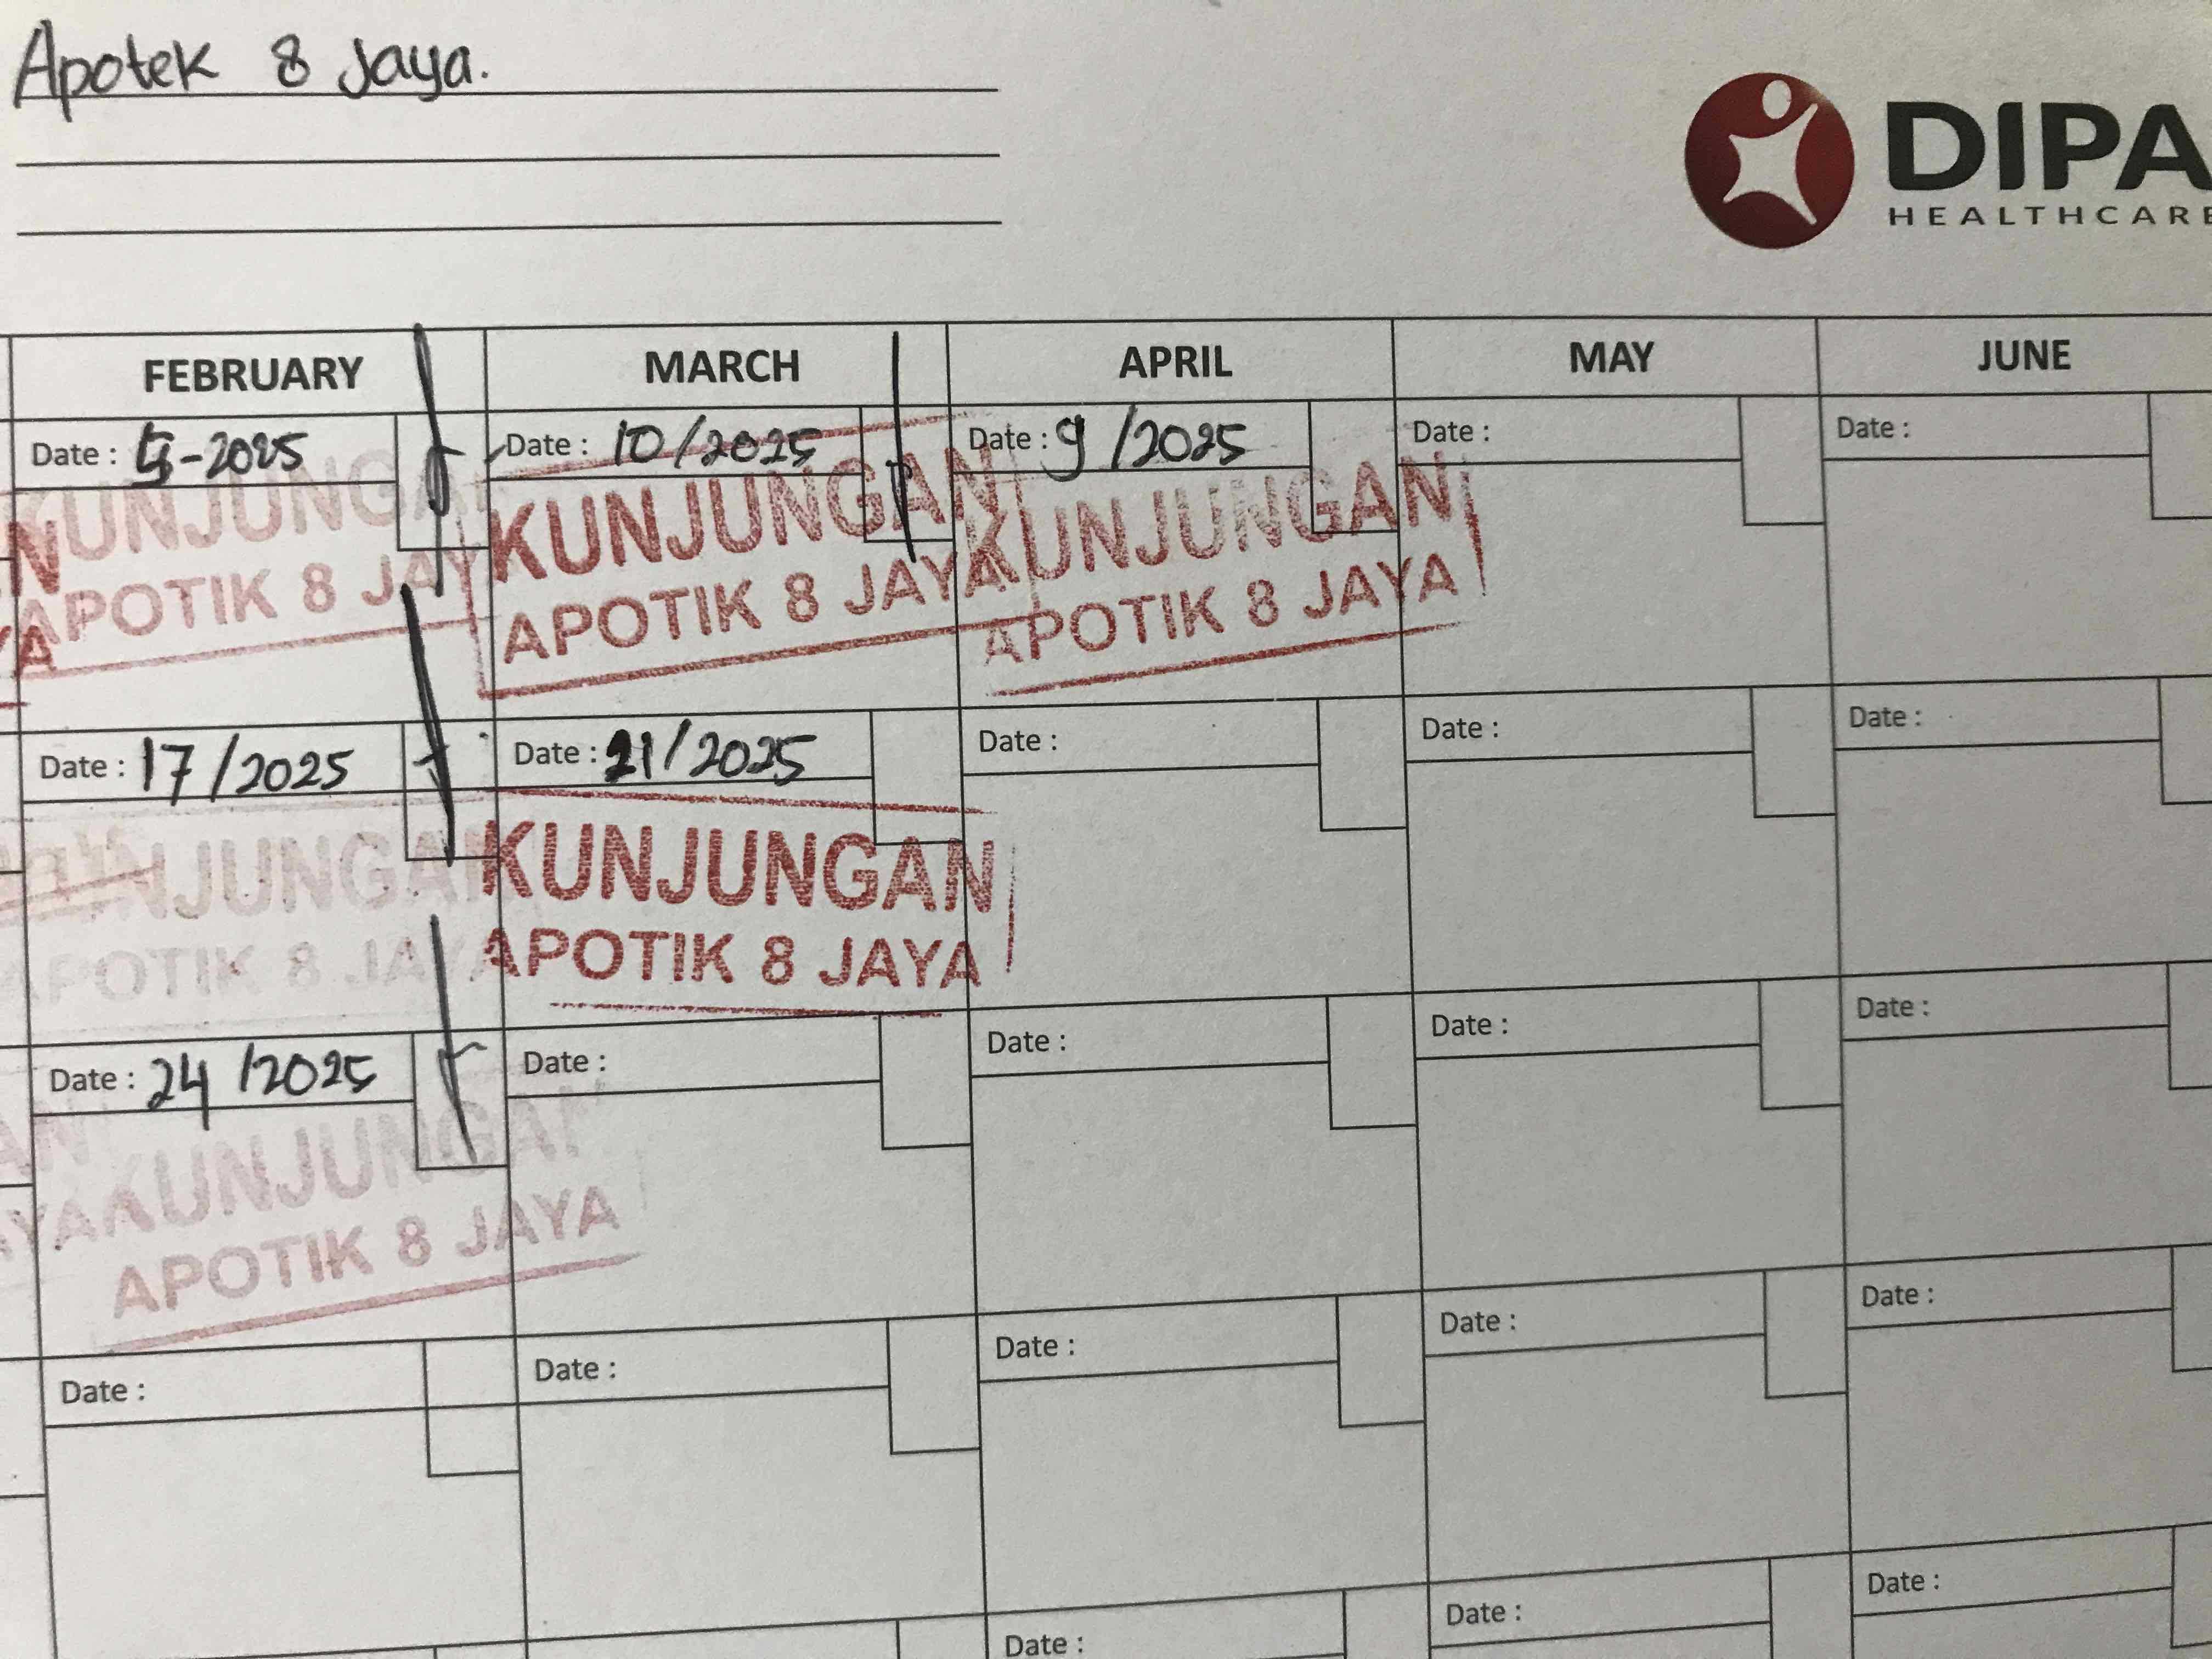 Apotek 8 Jaya.
DIPA
HEALTHCARE
FEBRUARY MARCH APRIL MAY JUNE
Date : -2025 Date : 10/2025 Date : 9/2025 Date : Date :
KUNJUNGAN KUNJUNGAN KUNJUNGAN
APOTIK 8 JAYA APOTIK 8 JAYA APOTIK 8 JAYA
Date : 17/2025 Date : 21/2025 Date : Date : Date :
KUNJUNGAN KUNJUNGAN
APOTIK 8 JAYA APOTIK 8 JAYA
Date : 24/2025 Date : Date : Date : Date :
KUNJUNGAN
APOTIK 8 JAYA
Date : Date : Date : Date : Date :
Date : Date : Date :